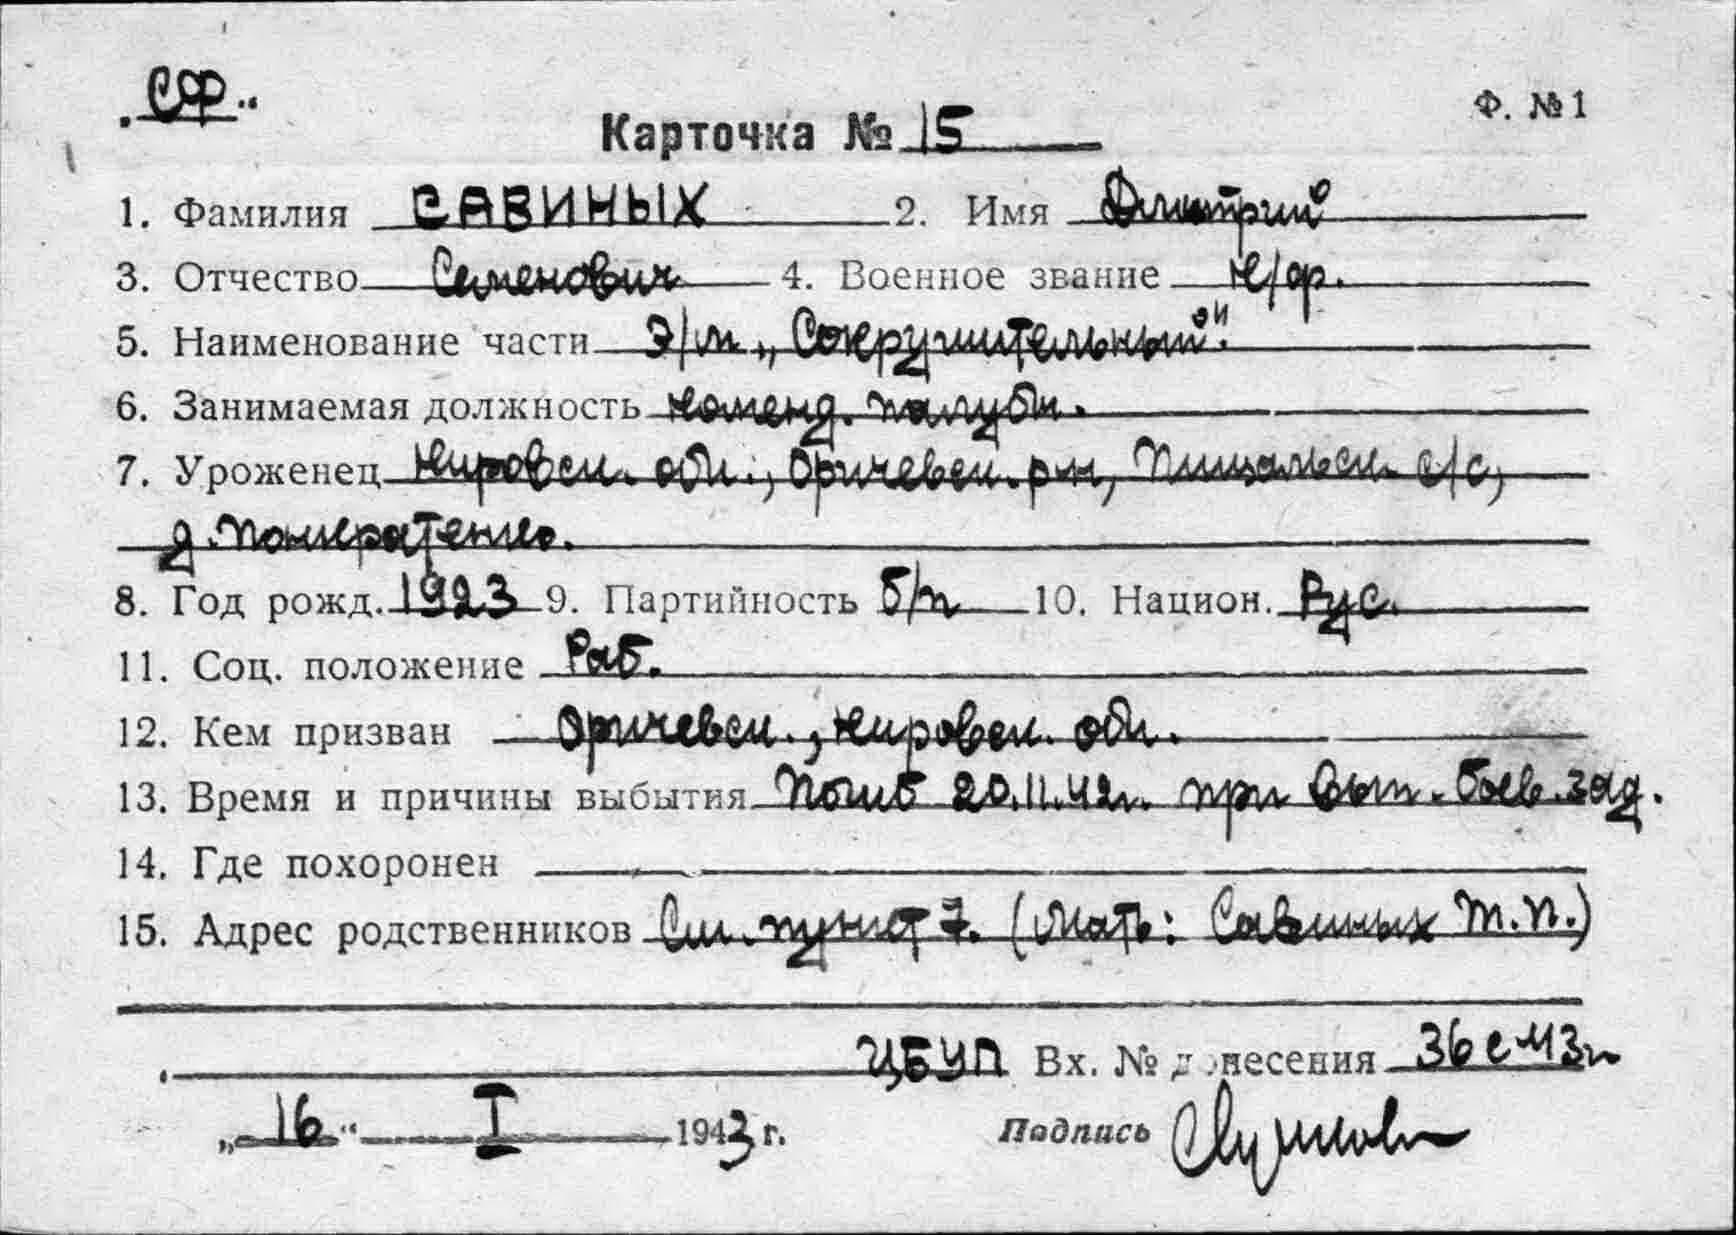 „СФ"
Ф. № 1
Карточка № 15
1. Фамилия САВИНЫХ 2. Имя Дмитрий
3. Отчество Семенович 4. Военное звание к/ф.
5. Наименование части Э/м „Сокрушительный"
6. Занимаемая должность коменд. палубн.
7. Уроженец Кировск. обл., Оричевск. р-н, Пищальск. с/с,
д.
8. Год рожд. 1923 9. Партийность б/п 10. Национ. Рус.
11. Соц. положение Раб.
12. Кем призван Оричевск., Кировск. обл.
13. Время и причины выбытия Погиб 20.11.42г. при вып. боев. зад.
14. Где похоронен
15. Адрес родственников См. пункт 7. (Мать: Савиных Т.П.)
ЦБУП Вх. № донесения 36с-43г
„16" I 1943 г. Подпись